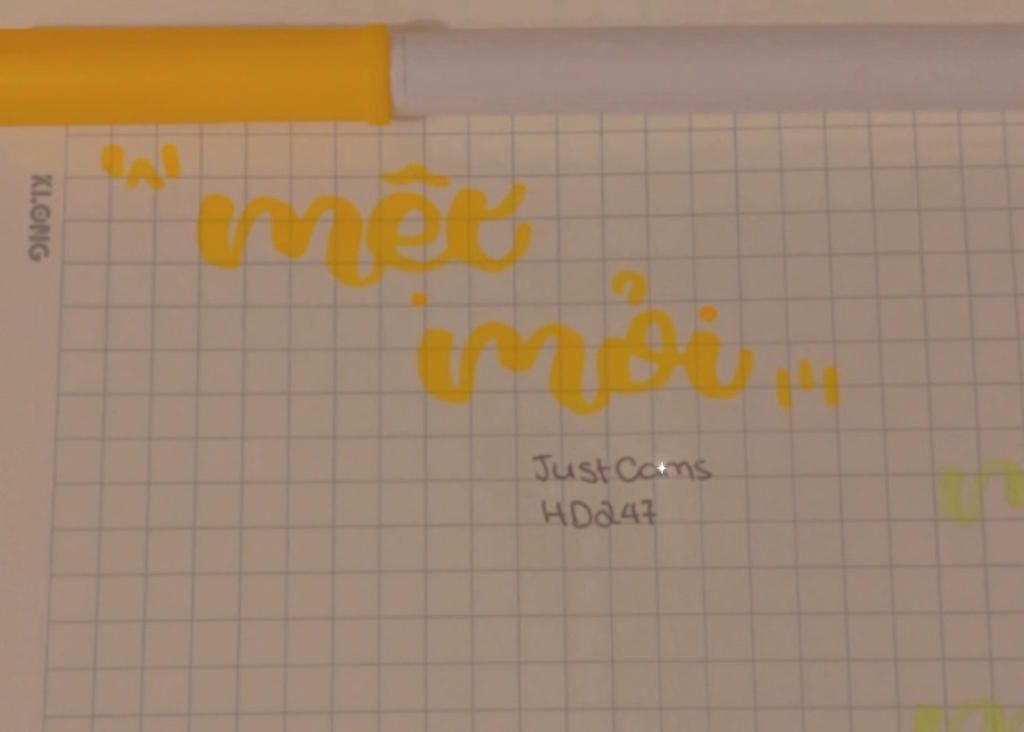 KLONG
mệt
mỏi
JustCams
HD247